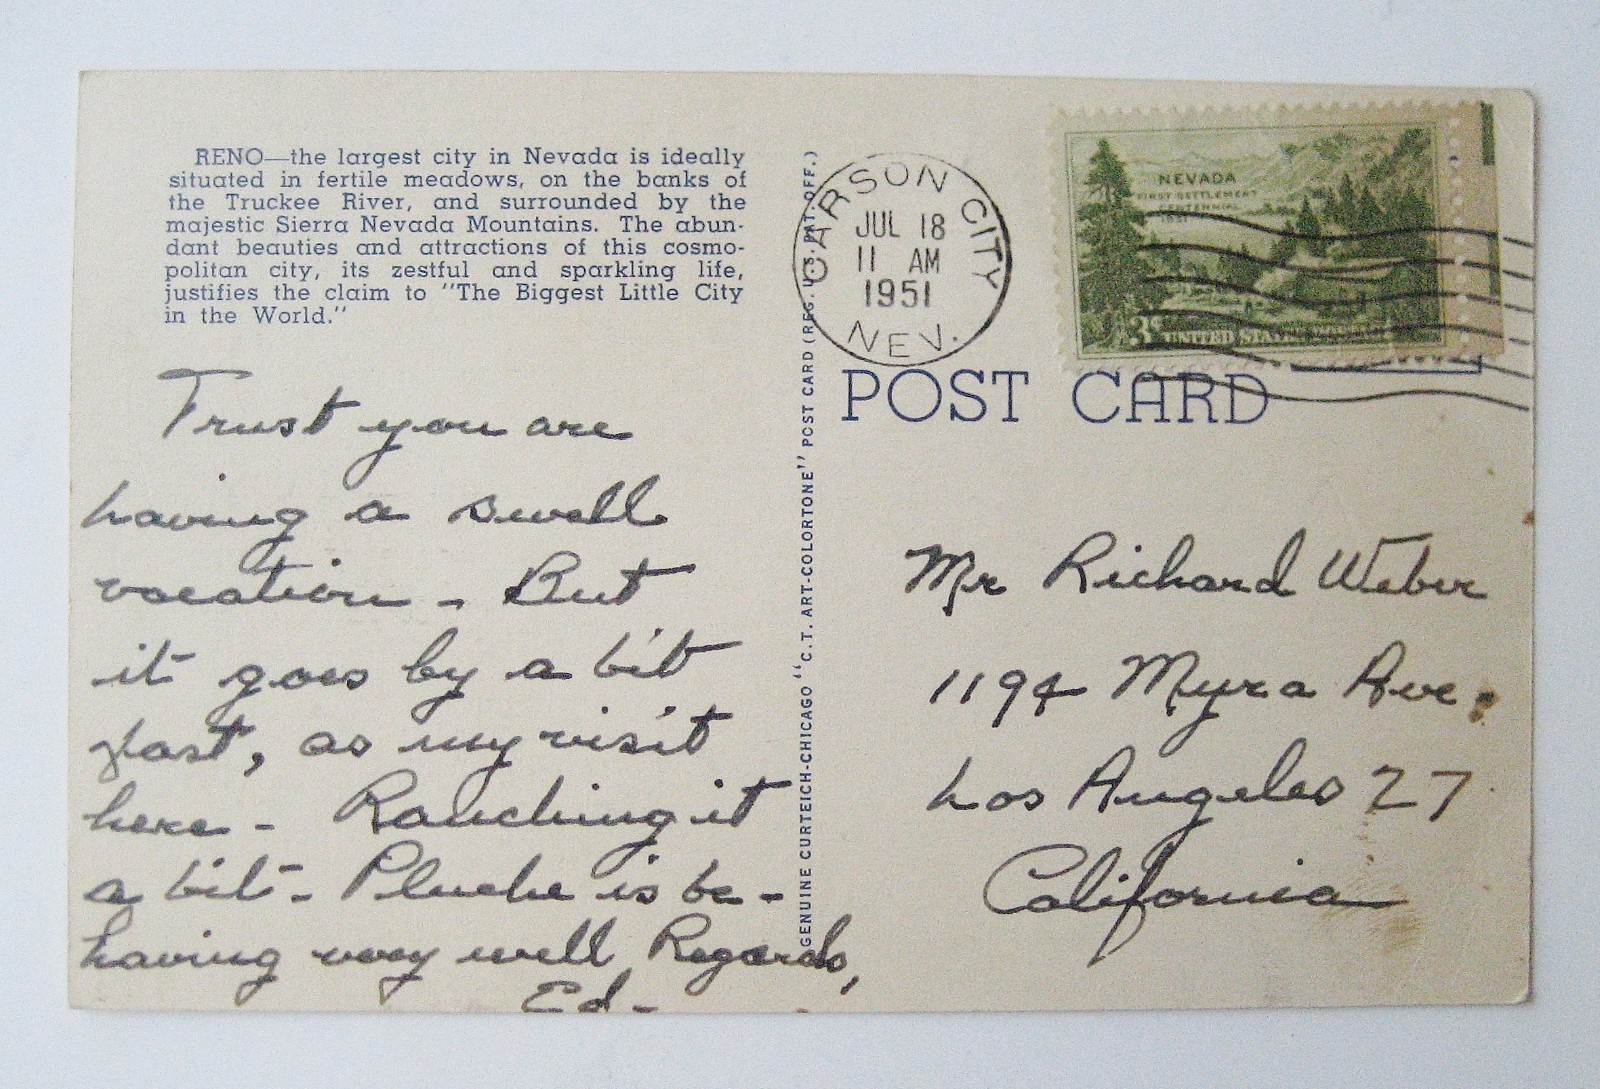 RENO—the largest city in Nevada is ideally
situated in fertile meadows, on the banks of
the Truckee River, and surrounded by the
majestic Sierra Nevada Mountains. The abun-
dant beauties and attractions of this cosmo-
politan city, its zestful and sparkling life,
justifies the claim to "The Biggest Little City
in the World."
Trust you are
having a swell
vacation - But
it goes by a bit
fast, as my visit
here - Ranching it
a bit - Pluche is be-
having very well Regards,
Ed-
GENUINE CURTEICH-CHICAGO "C.T. ART-COLORTONE" POST CARD (REG. U.S. PAT. OFF.)
CARSON CITY
JUL 18
11 AM
1951
NEV.
NEVADA
FIRST SETTLEMENT
CENTENNIAL
1951
3¢ UNITED STATES POSTAGE
POST CARD
Mr Richard Weber
1194 Myra Ave.
Los Angeles 27
California